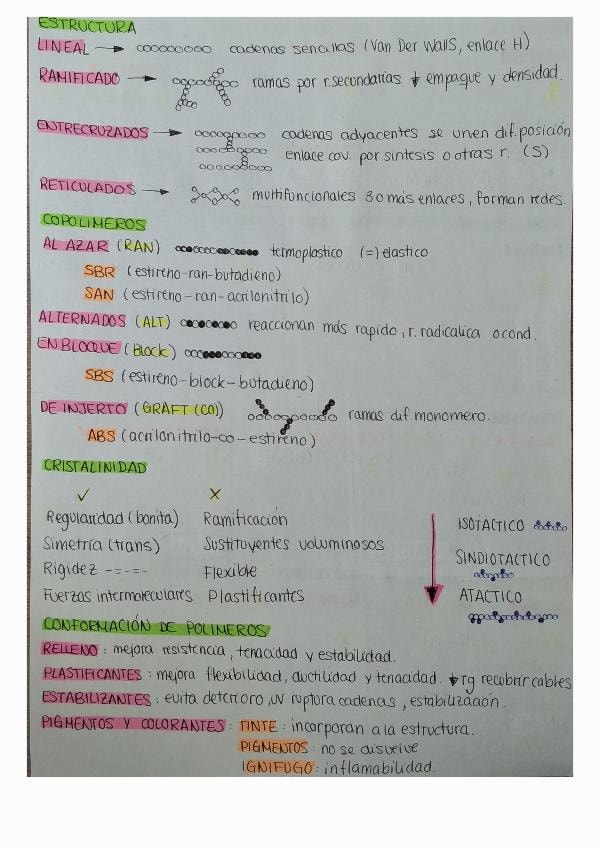 ESTRUCTURA
LINEAL → cadenas sencillas (Van Der Walls, enlace H)
RAMIFICADO → ramas por r.secundarias ↓ empaque y densidad.
ENTRECRUZADOS → cadenas adyacentes se unen dif. posición
enlace cov. por sintesis o otras r. (S)
RETICULADOS → multifuncionales 3 o más enlaces, forman redes.
COPOLIMEROS
AL AZAR (RAN) termoplastico (=) elastico
SBR (estireno-ran-butadieno)
SAN (estireno-ran-acrilonitrilo)
ALTERNADOS (ALT) reaccionan más rapido, r. radicalica o cond.
EN BLOQUE (Block)
SBS (estireno-block-butadieno)
DE INJERTO (GRAFT (CO)) ramas dif. monomero.
ABS (acrilonitrilo-co-estireno)
CRISTALINIDAD
✓ X
Regularidad (bonita) Ramificación ISOTACTICO
Simetría (trans) Sustituyentes voluminosos SINDIOTACTICO
Rigidez -=-=- Flexible
Fuerzas intermoleculares Plastificantes ATACTICO
CONFORMACIÓN DE POLIMEROS
RELLENO: mejora resistencia, tenacidad y estabilidad.
PLASTIFICANTES: mejora flexibilidad, ductilidad y tenacidad. ↓Tg recubrir cables
ESTABILIZANTES: evita deterioro, UV ruptura cadenas, estabilización.
PIGMENTOS Y COLORANTES: TINTE: incorporan a la estructura.
PIGMENTOS: no se disuelve
IGNIFUGO: inflamabilidad.